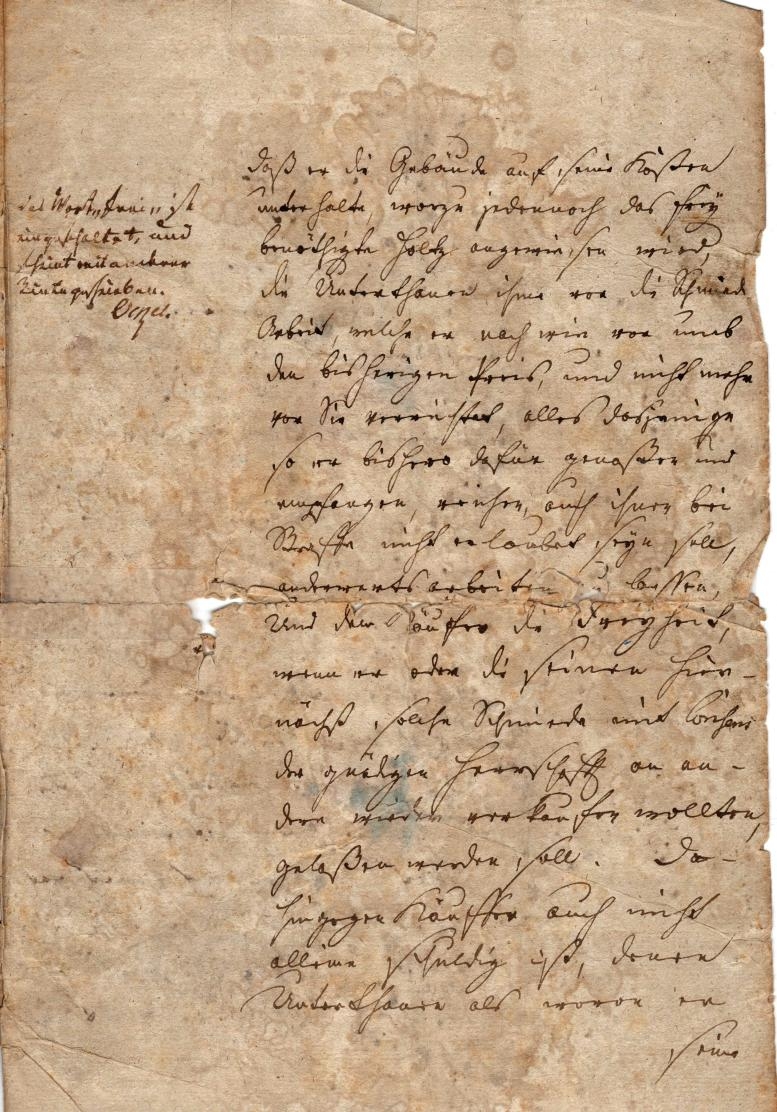 das Wort „frei„ ist
eingeschaltet, und
scheint mit anderer
Dinte geschrieben.
daß er die Gebäude auf seine Kosten
unterhalte, worzu jedennoch das frey
benöthigte Holtz angewiesen wird,
die Unterthanen ihme vor die Schmiede
Arbeit, welche er nach wie vor umb
den bisherigen Preis, und nicht mehr
vor Sie verrichtet, alles dasjenige
so er bishero dafür genoßen und
empfangen, reichen, auch ihnen bei
Straffe nicht erlaubet seyn soll,
anderwerts arbeiten zu lassen,
Und dem Käufer die Freyheit,
wenn er oder die seinen hier-
nächst solche Schmiede mit Consens
der gnädigen Herrschafft an an-
dere wieder verkaufen wollten,
gelaßen werden soll. Da-
hingegen Käuffer auch nicht
alleine schuldig ist, denen
Unterthanen als wovon er
seine